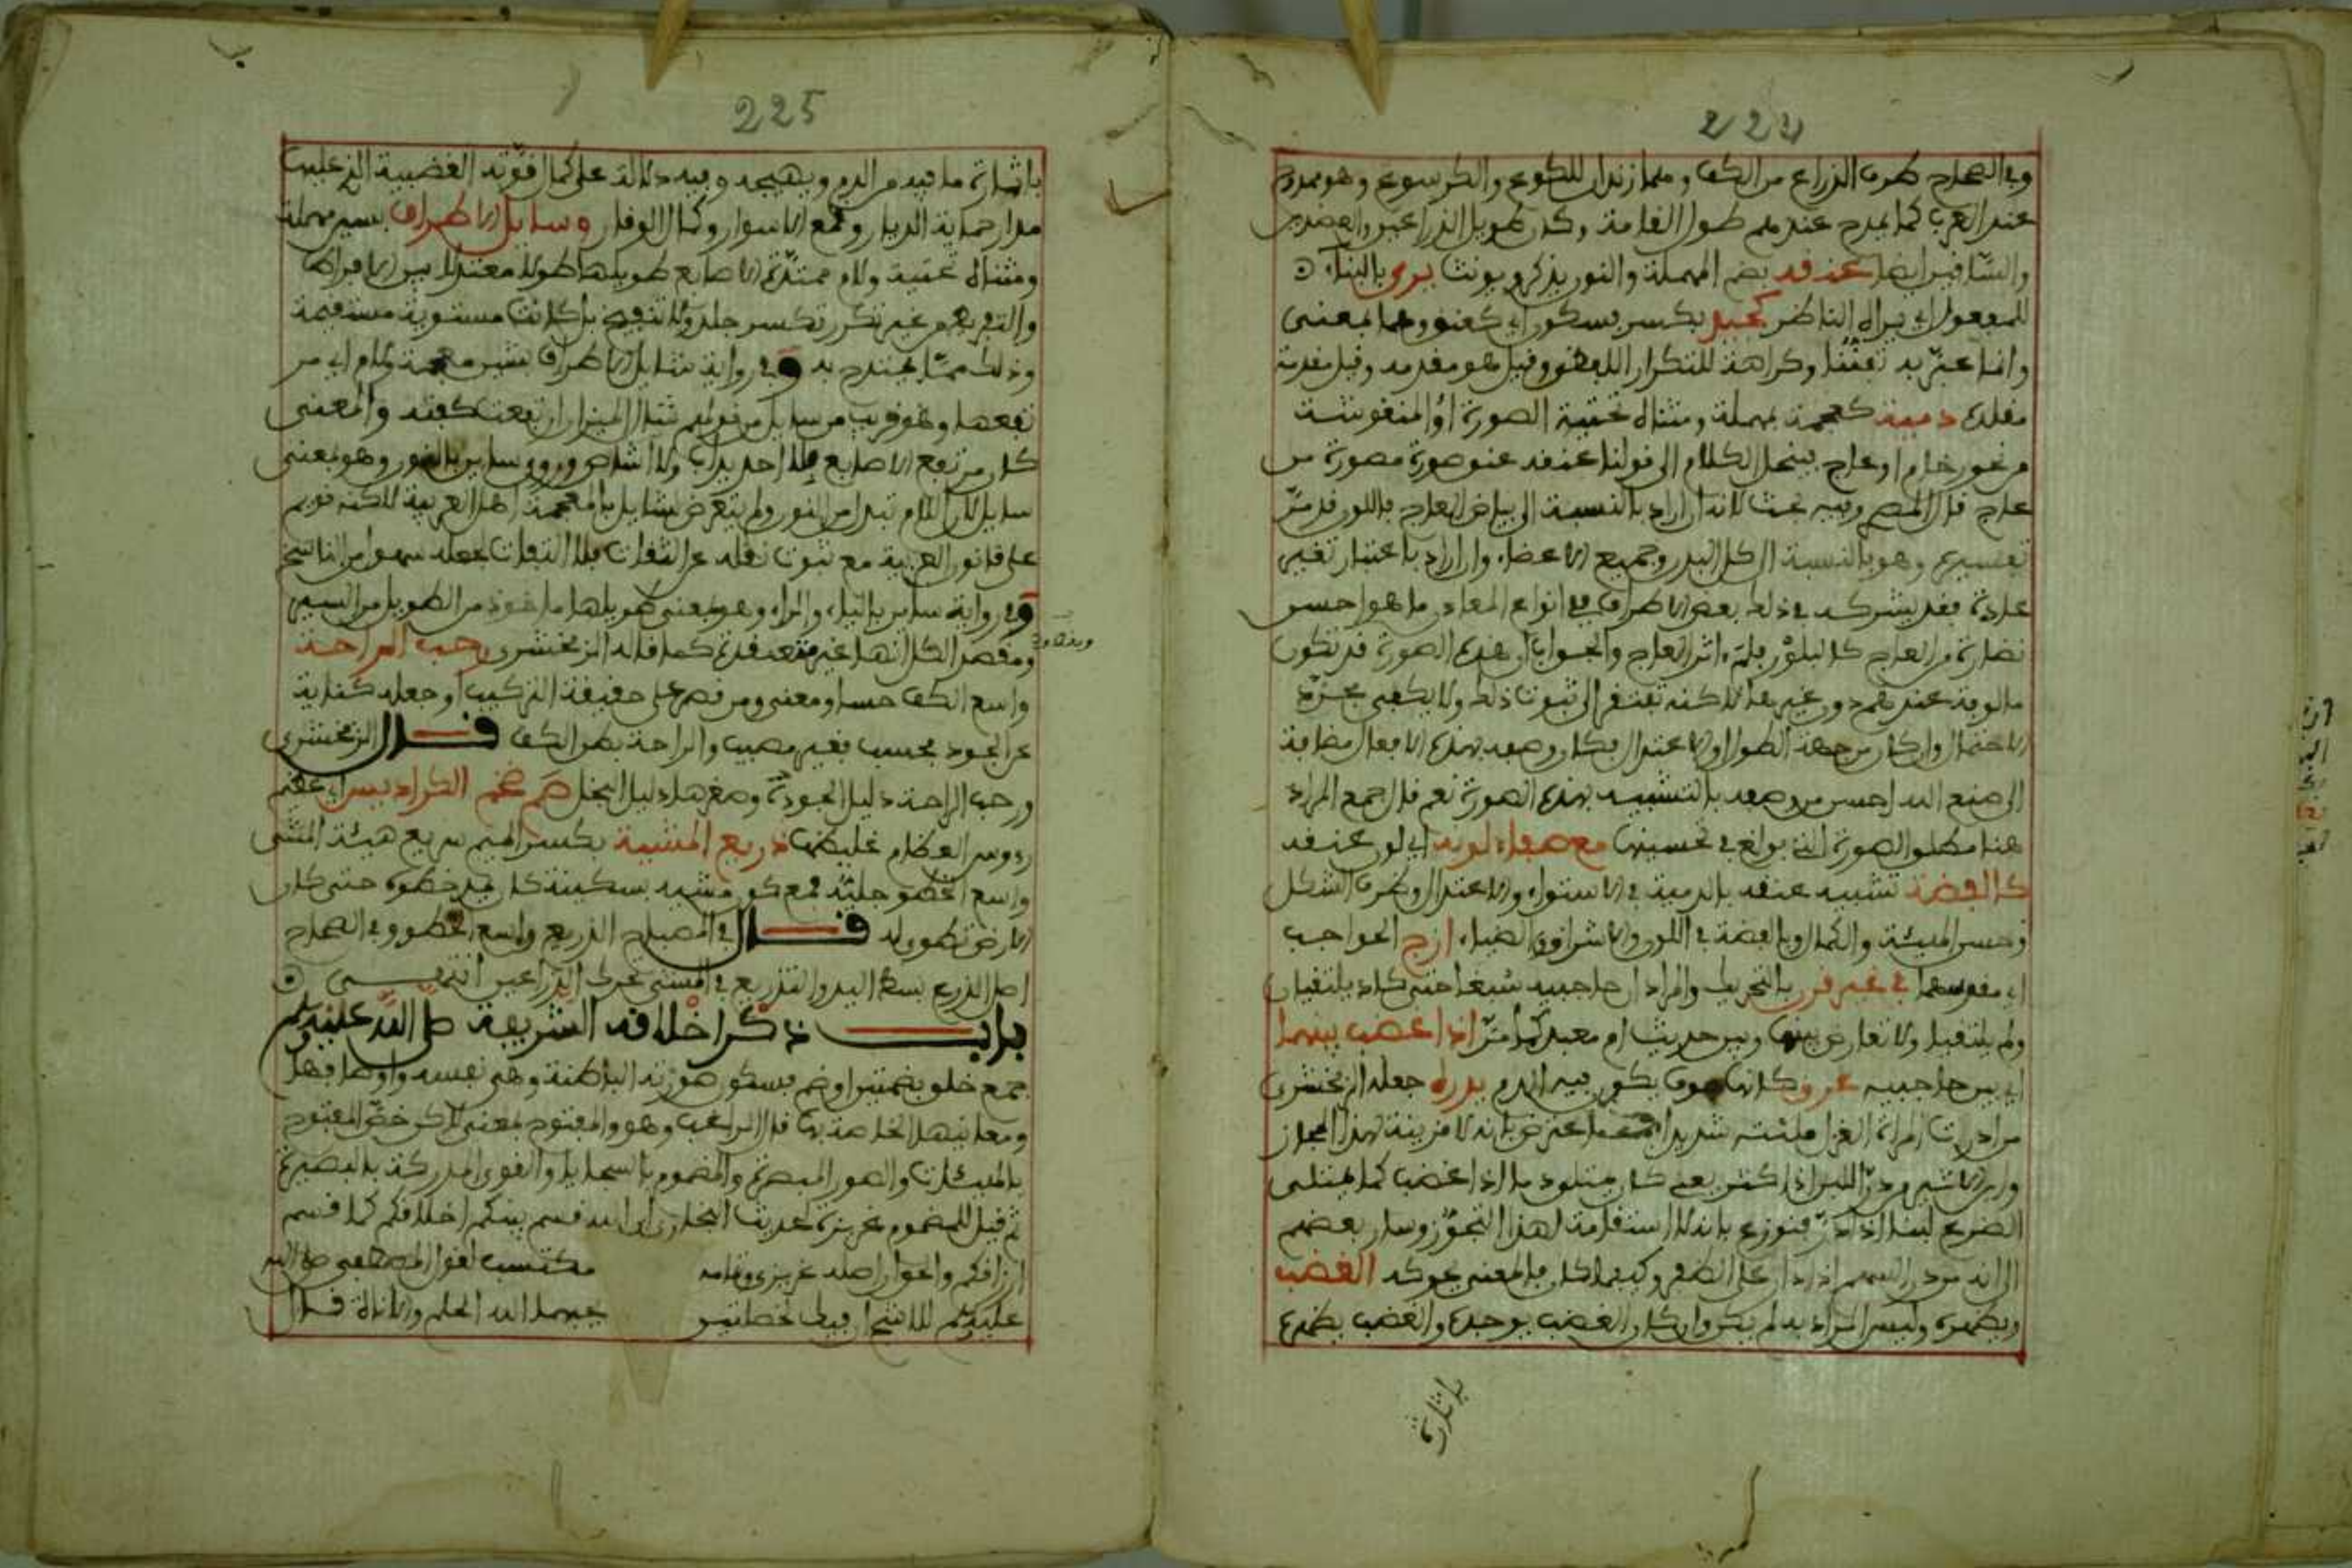 224
وفي الصحاح طرف الذراع من الكف وهما زندان للكوع والكرسوع وهو ممدوح
عند العرب كما يمدح عندهم طول القامة وكذا طويل الذراعين والعضدين
والساقين ايضا عنقه بضم المهملة والنون يذكر ويونث يرى بالبناء
للمفعول اي يراه الناظر كجيد بكسر فسكون اي كعنق وهما بمعنى
وانما عبر به تفننا وكراهة للتكرار اللفظي وقيل هو مقدمه وقيل مقدمة
مقلده دمية كعجمة بمهملة ومثناة تحتية الصورة او المنقوشة
من نحو رخام او عاج فينحل الكلام الى قولنا عنقه عنق صورة مصورة من
عاج قال المص وفيه بحث لانه ان اراد بالنسبة الى بياض العاج فاللون قد مر
تفسيره وهو بالنسبة الى كل البدن وجميع الاعضاء وان اراد باعتبار تغير
عادة فقد يشركه في ذلك بعض الاطراف في انواع المعادن ما هو احسن
نضارة من العاج كالبلور فلم اثر العاج والجواب ان هذه الصورة قد تكون
مالوفة عندهم دون غيرها لاكنه تفتقر الى ثبوت ذلك ولا يكفي مجرد
الاحتمال وان كان من جهة الطول او الاعتدال فكان وصفه بهذه الافعال مضافة
الى صنع الله احسن من وصفه بالتشبيه بهذه الصورة نعم قال جمع المراد
هنا مطلق الصورة التي بولغ في تحسينها مع صفاء لونه اي لون عنقه
كالفضة تشبيه عنقه بالدمية في الاستواء والاعتدال وظرف الشكل
وحسن الهيئة والكمال وبالفضة في اللون والاشراق والضياء ازج الحواجب
اي مقوسهما في غير قرن بالتحريك والمراد ان حاجبيه سبغا حتى كادا يلتقيان
ولم يلتقيا ولا تعارض بينها وبين حديث ام معبد كما مر اذا غضب بينهما
اي بين حاجبيه عرق كانها يكون فيه الدم يدره جعله الزمخشري
من ادرت المراة الغزل فتلته شديدا اعترض بانه لا قرينة لهذا المجاز
وابن الاثير من در اللبن اذا كثر يعني كان يمتلئ دما اذا غضب كما يمتلي
الضرع لبنا اذا در فنوزع بانه لا استقامة لهذا التجوز وسار بعضهم
الى انه من در السهم اذا دار على الظفر وكيفما كان فالمعنى يحركه الغضب
ويظهره وليس المراد به لم يكن وان كان الغضب يوجده والغضب يظهره
باثارة
225
باثارة ما فيه من الدم ويهيجه وفيه دلالة على كمال قوته الغضبية التي عليها
مدار حماية الديار وقمع الاشرار وكمال الوقار وسايل الاطراف بسين مهملة
ومثناة تحتية ولام ممتدة الاصابع طويلها طولا معتدلا بين الافراط
والتفريط من غير تكرر تكسر جلد ولا تنقبض بل كانت مستوية مستقيمة
وذلك مما يمتدح به وفي رواية شايل الاطراف بشين معجمة ولام اي مر
تفعها وهو قريب من سايل من قولهم شال الميزان ارتفعت كفته والمعنى
كان مرتفع الاصابع بلا احديداب ولا انقباض وروي وساين بالنون وهو بمعنى
سايل لان اللام تبدل من النون ولم يتعرض لشايل بالمعجمة اهل العربية لاكنه قويم
على قانون العربية مع ثبوت نقله عن الثقات فلا التفات لجعله سهوا من الناسخ
وفي رواية ساير بالياء والراء وهو بمعنى طويلها ماخوذ من الطويل من السير
ومقصد الكل انها غير متعقدة كما قاله الزمخشري رحب الراحة
واسع الكف حسا ومعنى ومن قصره على حقيقة التركيب او جعله كناية
عن الجود فحسب فغير مصيب والراحة بطن الكف قال الزمخشري
ورحب الراحة دليل الجودة وصغرها دليل البخل ضخم الكراديس اي عظم
رءوس العظام غليظها ذريع المشية بكسر الميم سريع هيئة المشي
واسع الخطو جليه فمع كون مشيه بسكينة كان يمد خطوه حتى كان
الارض تطوى له قال في المصباح الذريع واسع الخطو وفي الصحاح
اصل الذرع بسط اليد والتذريع في المشي تحرك الذراعين انتهى
باب ذكر اخلاقه الشريفة صلى الله عليه وسلم
جمع خلق بضمتين او ضم فسكون صورته الباطنة وهي نفسه واوصافها
ومعانيها الخاصة بها قال الراغب وهو والمفتوح بمعنى لاكن خص المفتوح
بالهيئات والصور المبصرة والمضموم بالسجايا والقوى المدركة بالبصيرة
ثم قيل للمضموم غريزة لحديث البخاري ان الله قسم بينكم اخلاقكم كما قسم
ارزاقكم والحق ان اصله غريزي وتمامه مكتسب لقول المصطفى صلى الله
عليه وسلم للاشج ان فيك لخصلتين يحبهما الله الحلم والاناة قال